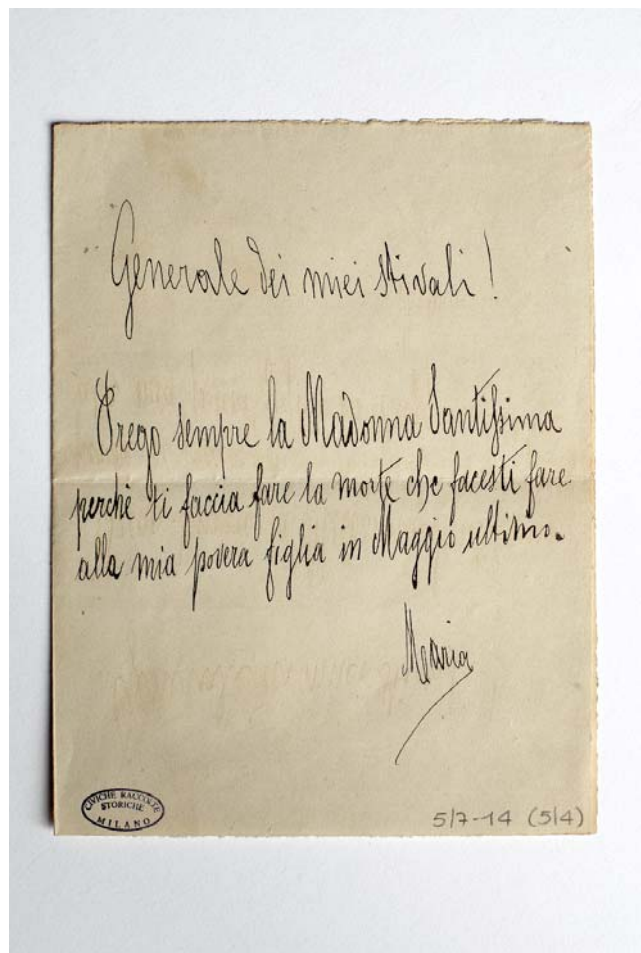 Generale dei miei stivali!
Prego sempre la Madonna Santissima
perchè ti faccia fare la morte che facesti fare
alla mia povera figlia in Maggio ultimo.
Maria
CIVICHE RACCOLTE
STORICHE
MILANO
5/7-14 (5/4)